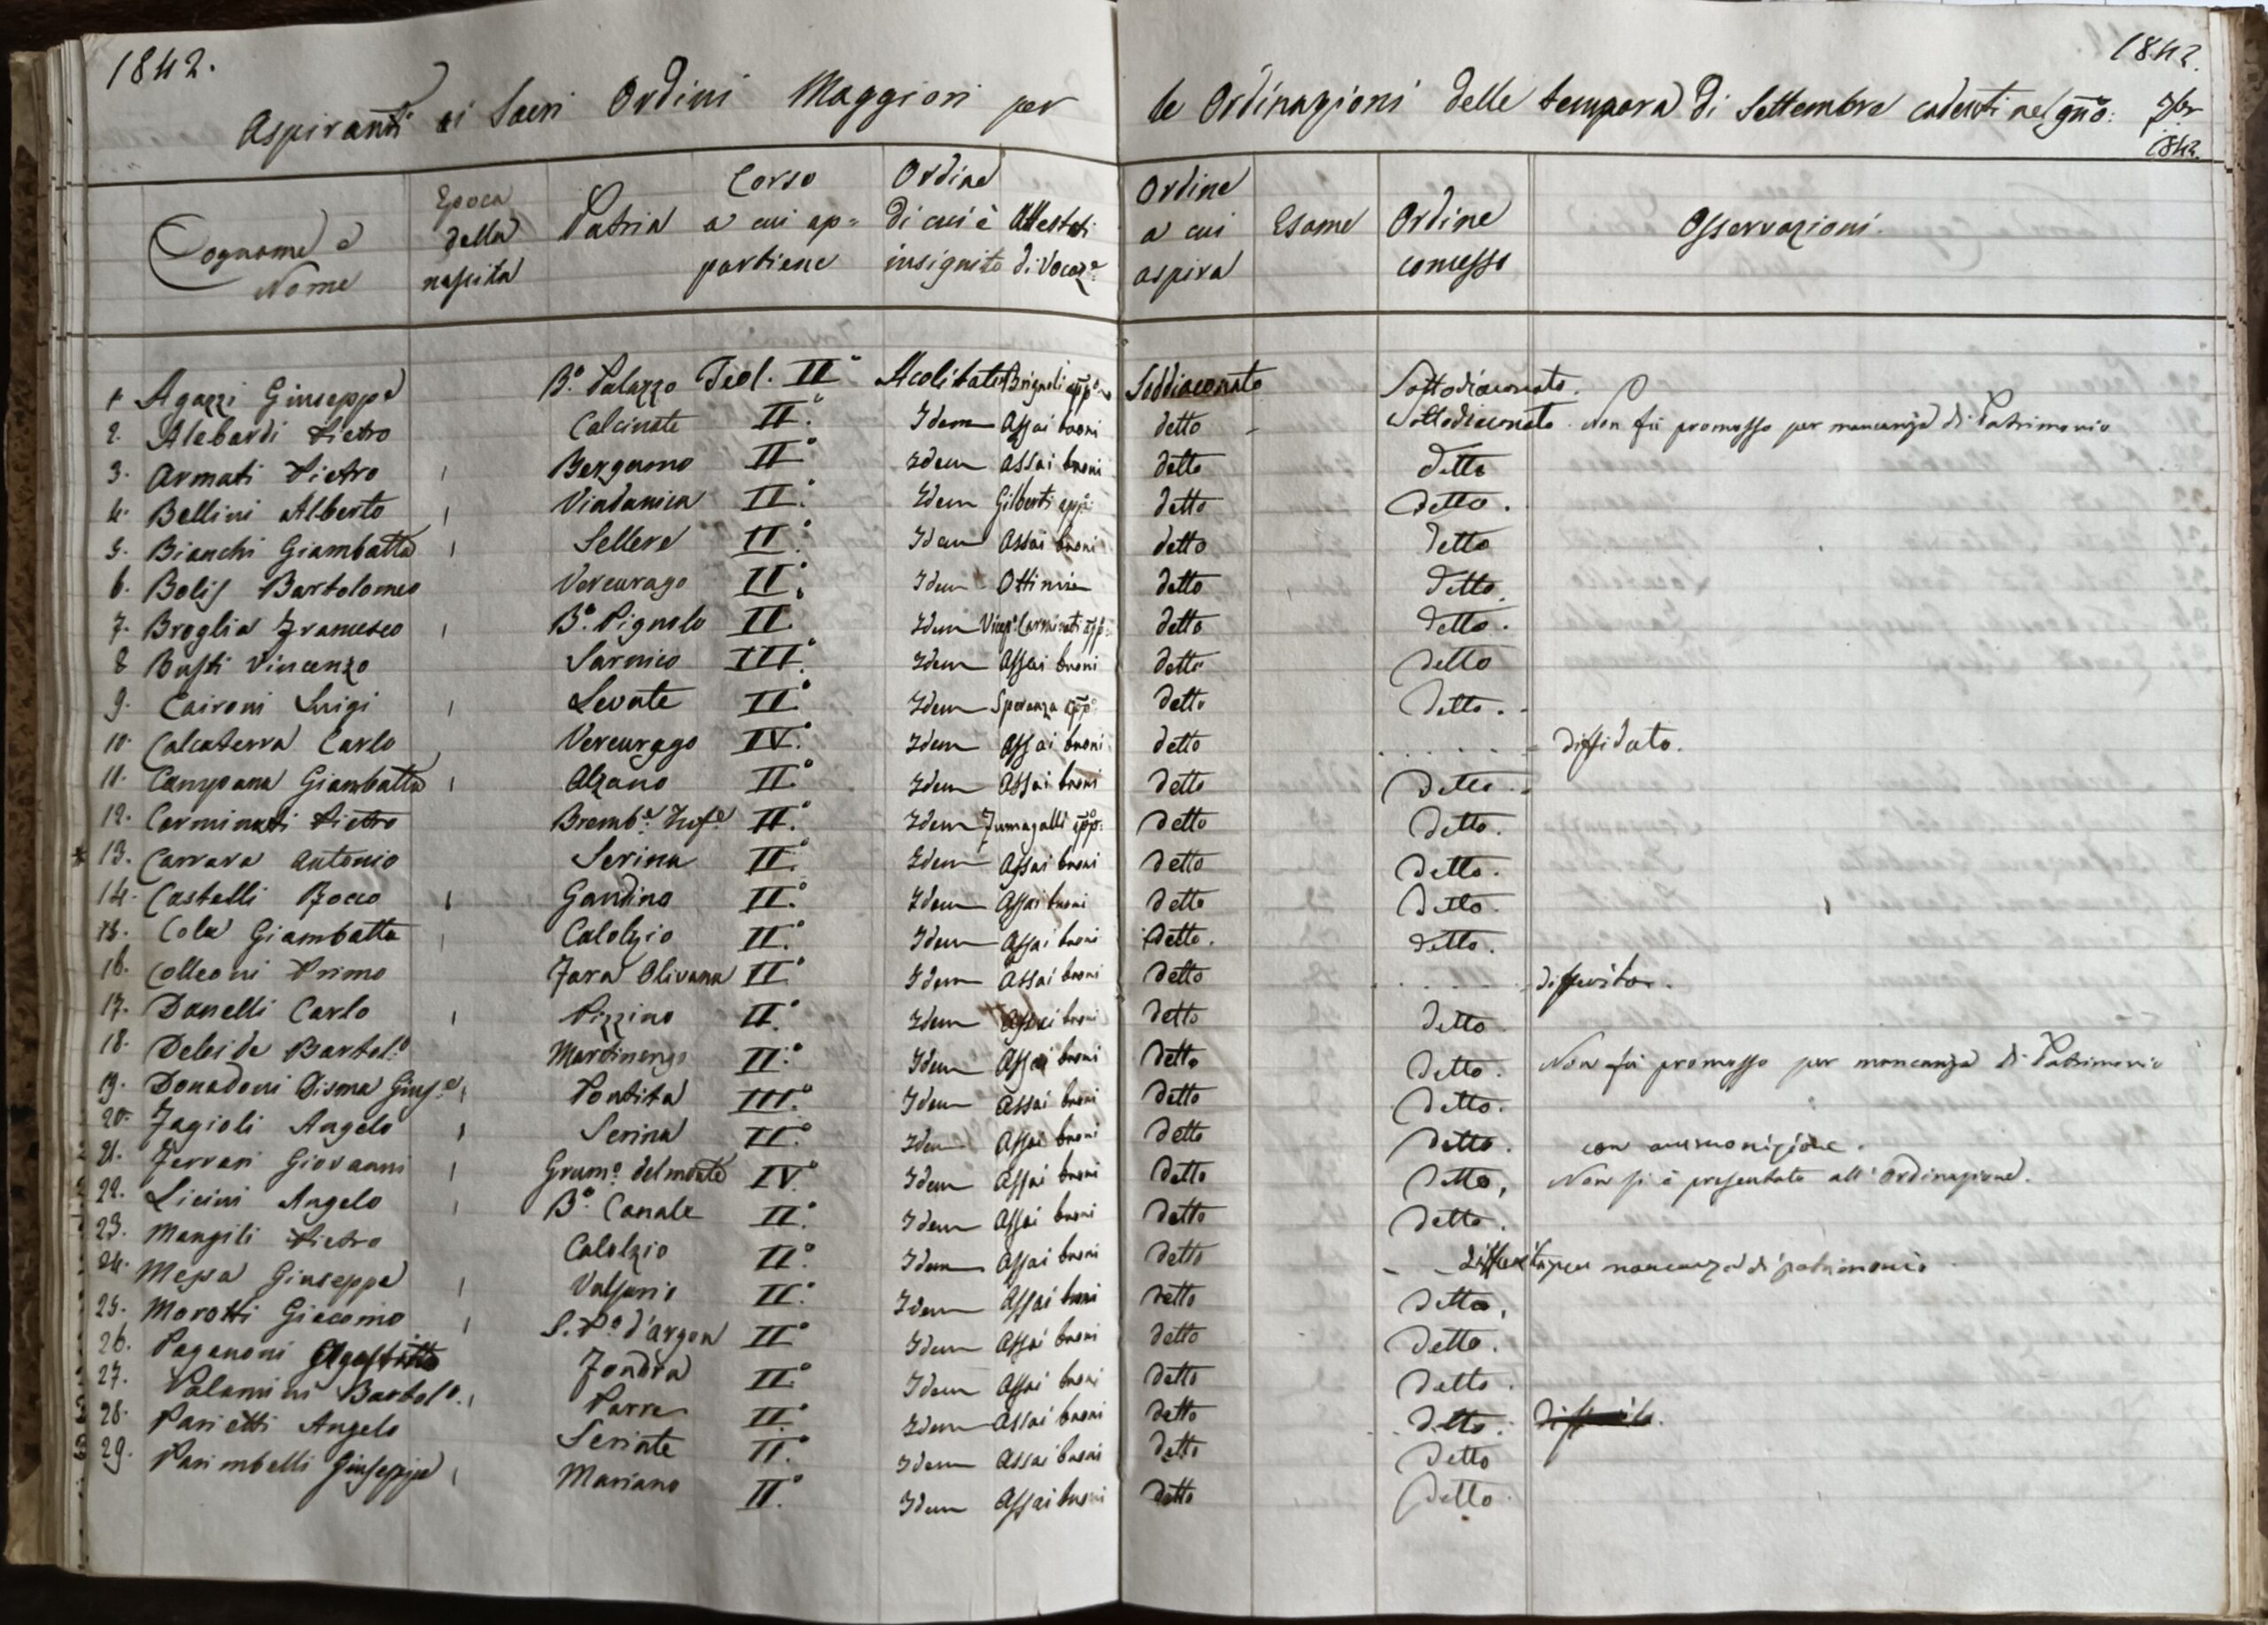 1842.
1842.
Aspiranti ai Sacri Ordini Maggiori per le Ordinazioni delle tempora di Settembre cadenti nel gno: 7br
1842.
Cognome e Nome
Epoca della nascita
Patria
Corso a cui ap= partiene
Ordine di cui è insignito
Attestati di Vocaze
Ordine a cui aspira
Esame
Ordine comesso
Osservazioni.
1. Agazzi Giuseppe Bo. Palazzo Teol. II° Acolitato Brignoli appo Soddiaconato Sottodiaconato.
2. Alebardi Pietro Calcinate II.° Idem Assai buoni detto Sottodiaconato. Non fù promosso per mancanza di Patrimonio
3. Armati Pietro Bergamo II° Idem Assai buoni detto detto
4. Bellini Alberto Viadanica II.° Idem Gilberti appo: detto detto.
5. Bianchi Giambatta Sellere II.° Idem Assai buoni detto detto
6. Bolis Bartolomeo Vercurago II.° Idem Ottimi detto detto.
7. Broglia Francesco Bo. Pignolo II. Idem Vicepo Carminati app: detto detto.
8 Busti Vincenzo Sarnico III.° Idem Assai buoni detto detto
9. Caironi Luigi Levate II.° Idem Speranza appo: detto detto.
10. Calcaterra Carlo Vercurago IV.° Idem Assai buoni detto . . . . . = diffidato.
11. Campana Giambatta Alzano II.° Idem Assai buoni detto detto.
12. Carminati Pietro Brembe. Infe. II.° Idem Fumagalli app: detto detto.
* 13. Carrara Antonio Serina II.° Idem Assai buoni detto detto.
14. Castelli Rocco Gandino II.° Idem Assai buoni detto detto.
15. Cola Giambatta Calolzio II.° Idem Assai buoni detto. detto.
16. Colleoni Primo Fara Olivana II.° Idem Assai buoni detto . . . . . differito.
17. Danelli Carlo Pizzino II.° Idem Assai buoni detto detto
18. Deleide Bartol.o Martinengo II.° Idem Assai buoni detto detto. Non fù promosso per mancanza di Patrimonio
19. Donadoni Disma Gius.e Pontita III.° Idem Assai buoni detto detto.
20. Fagioli Angelo Serina II.° Idem Assai buoni detto detto. con ammonizione.
21. Ferrari Giovanni Grum.o del monte IV.° Idem Assai buoni detto detto, Non si è presentato all'Ordinazione.
22. Licini Angelo Bo. Canale II.° Idem Assai buoni detto detto.
23. Mangili Pietro Calolzio II.° Idem Assai buoni detto - - differito per mancanza di patrimonio
24. Messa Giuseppe Valsurio II.° Idem Assai buoni detto detto,
25. Morotti Giacomo S. P.o d'argon II° Idem Assai buoni detto detto.
26. Paganoni Agostino Fondra II.° Idem Assai buoni detto detto.
27. Palamini Bartol.o Parre II.° Idem Assai buoni detto detto. differito.
28. Parietti Angelo Seriate II.° Idem Assai buoni detto detto
29. Parimbelli Giuseppe Mariano II.° Idem Assai buoni detto detto